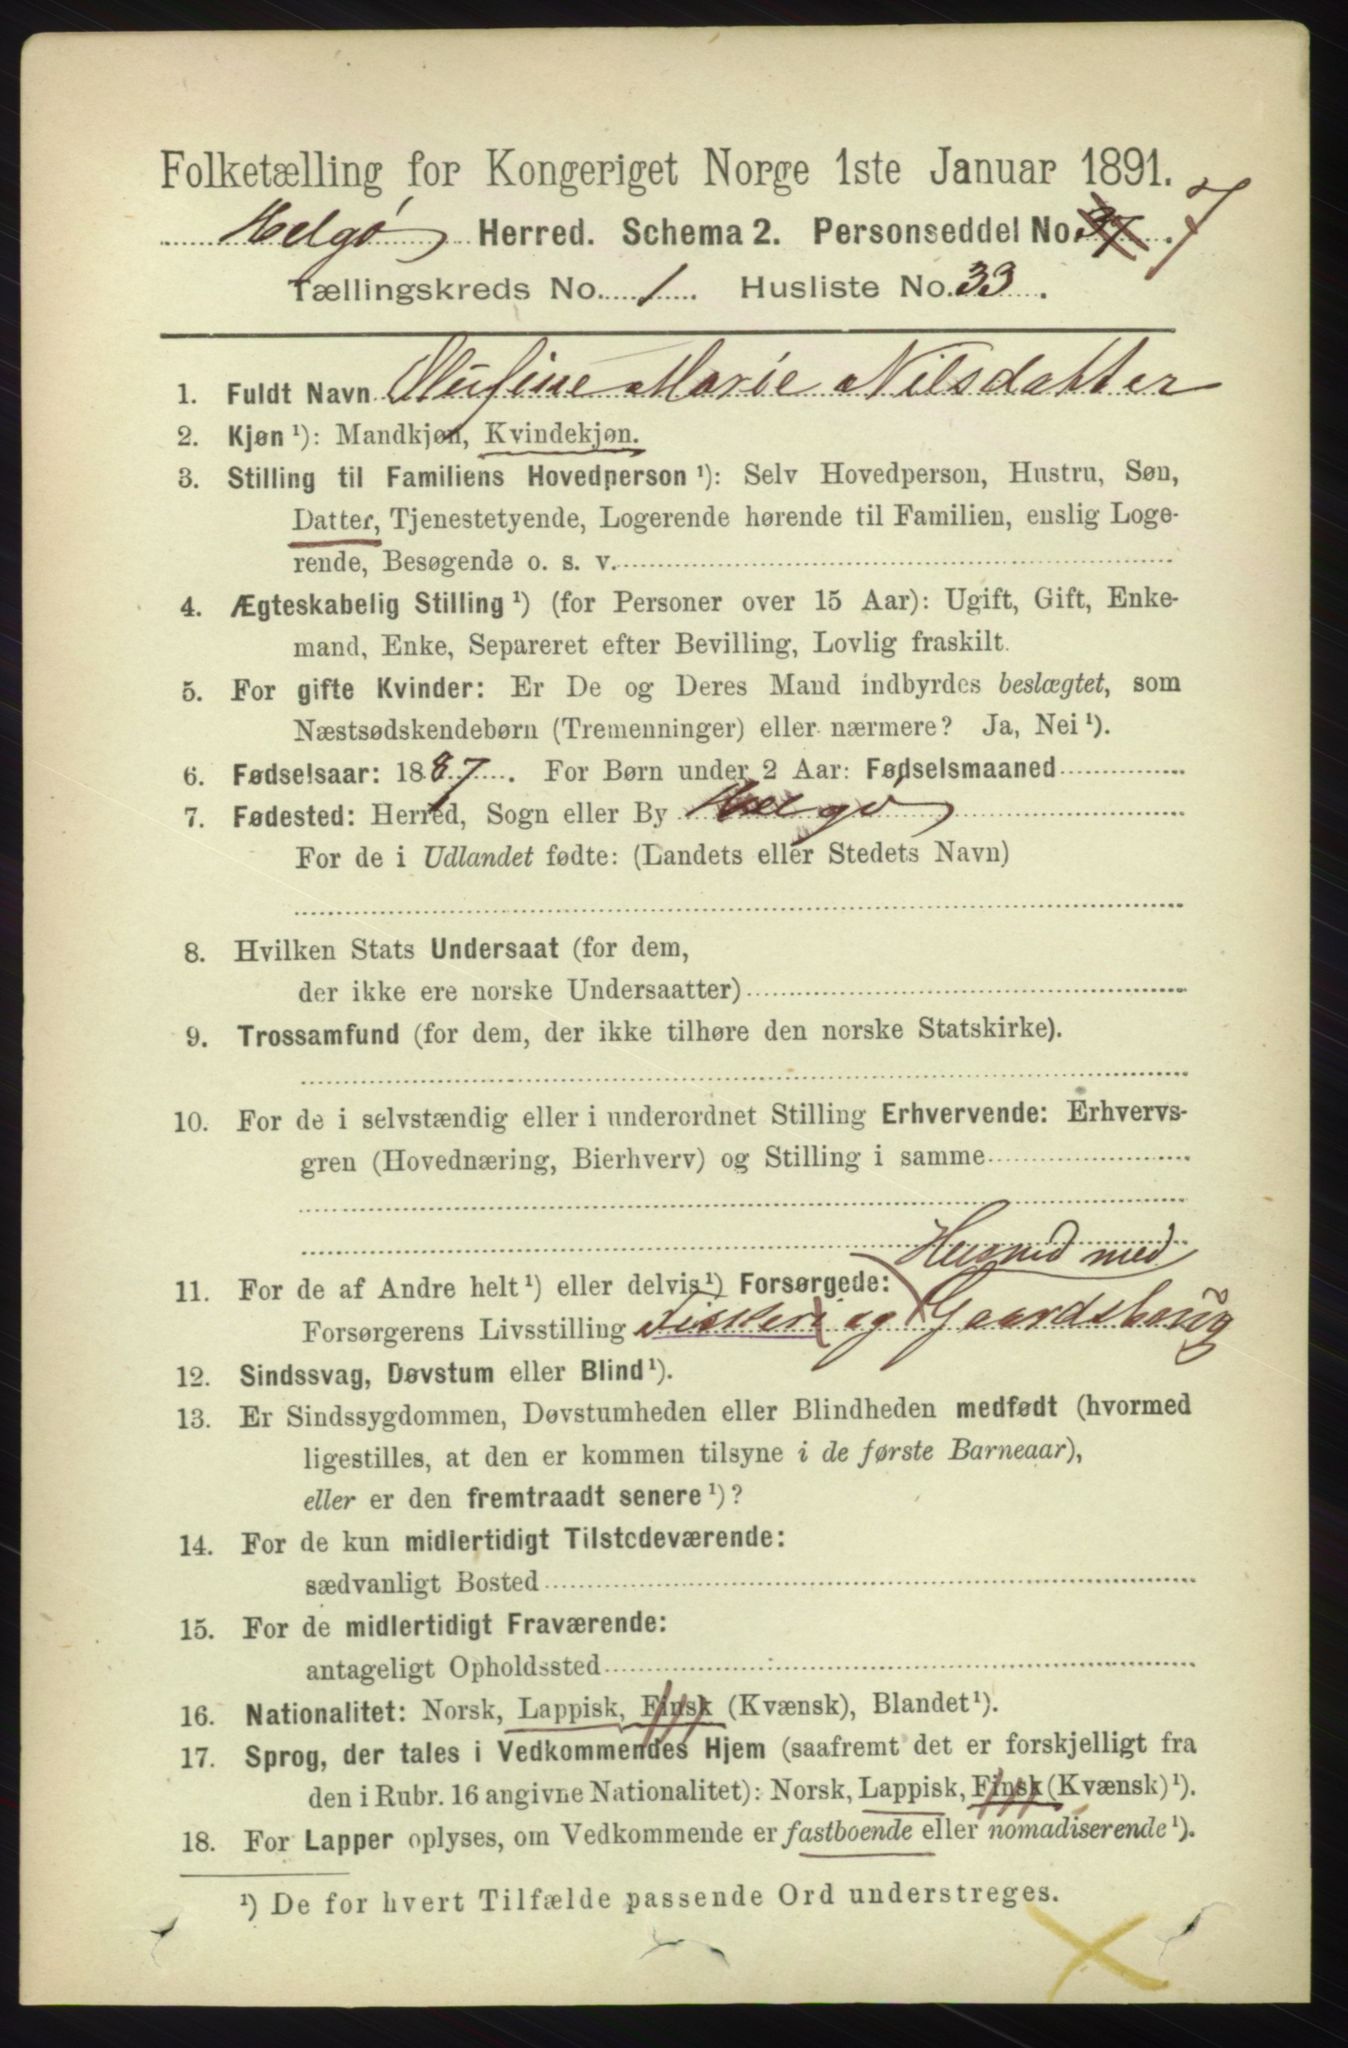 Folketælling for Kongeriget Norge 1ste Januar 1891.
Helgø Herred. Schema 2. Personseddel No. 37. 7
Tællingskreds No. 1. Husliste No. 33.
1. Fuldt Navn Olufine Marie Nilsdatter
2. Kjøn ¹): Mandkjøn, Kvindekjøn.
3. Stilling til Familiens Hovedperson ¹): Selv Hovedperson, Hustru, Søn,
Datter, Tjenestetyende, Logerende hørende til Familien, enslig Loge-
rende, Besøgende o. s. v.
4. Ægteskabelig Stilling ¹) (for Personer over 15 Aar): Ugift, Gift, Enke-
mand, Enke, Separeret efter Bevilling, Lovlig fraskilt.
5. For gifte Kvinder: Er De og Deres Mand indbyrdes beslægtet, som
Næstsødskendebørn (Tremenninger) eller nærmere? Ja, Nei ¹).
6. Fødselsaar: 1887. For Børn under 2 Aar: Fødselsmaaned
7. Fødested: Herred, Sogn eller By Helgø
For de i Udlandet fødte: (Landets eller Stedets Navn)
8. Hvilken Stats Undersaat (for dem,
der ikke ere norske Undersaatter)
9. Trossamfund (for dem, der ikke tilhøre den norske Statskirke).
10. For de i selvstændig eller i underordnet Stilling Erhvervende: Erhvervs-
gren (Hovednæring, Bierhverv) og Stilling i samme
Husmd med
11. For de af Andre helt ¹) eller delvis ¹) Forsørgede:
Forsørgerens Livsstilling Fiskeri og Gaardsbrug
12. Sindssvag, Døvstum eller Blind ¹).
13. Er Sindssygdommen, Døvstumheden eller Blindheden medfødt (hvormed
ligestilles, at den er kommen tilsyne i de første Barneaar),
eller er den fremtraadt senere ¹)?
14. For de kun midlertidigt Tilstedeværende:
sædvanligt Bosted
15. For de midlertidigt Fraværende:
antageligt Opholdssted
16. Nationalitet: Norsk, Lappisk, Finsk (Kvænsk), Blandet ¹).
17. Sprog, der tales i Vedkommendes Hjem (saafremt det er forskjelligt fra
den i Rubr. 16 angivne Nationalitet): Norsk, Lappisk, Finsk (Kvænsk) ¹).
18. For Lapper oplyses, om Vedkommende er fastboende eller nomadiserende ¹).
¹) De for hvert Tilfælde passende Ord understreges.